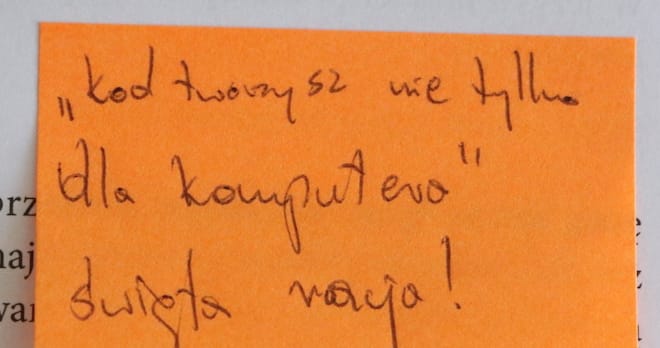 „kod tworzysz nie tylko
dla komputera"
święta racja!
orz
naj
war
ę
z